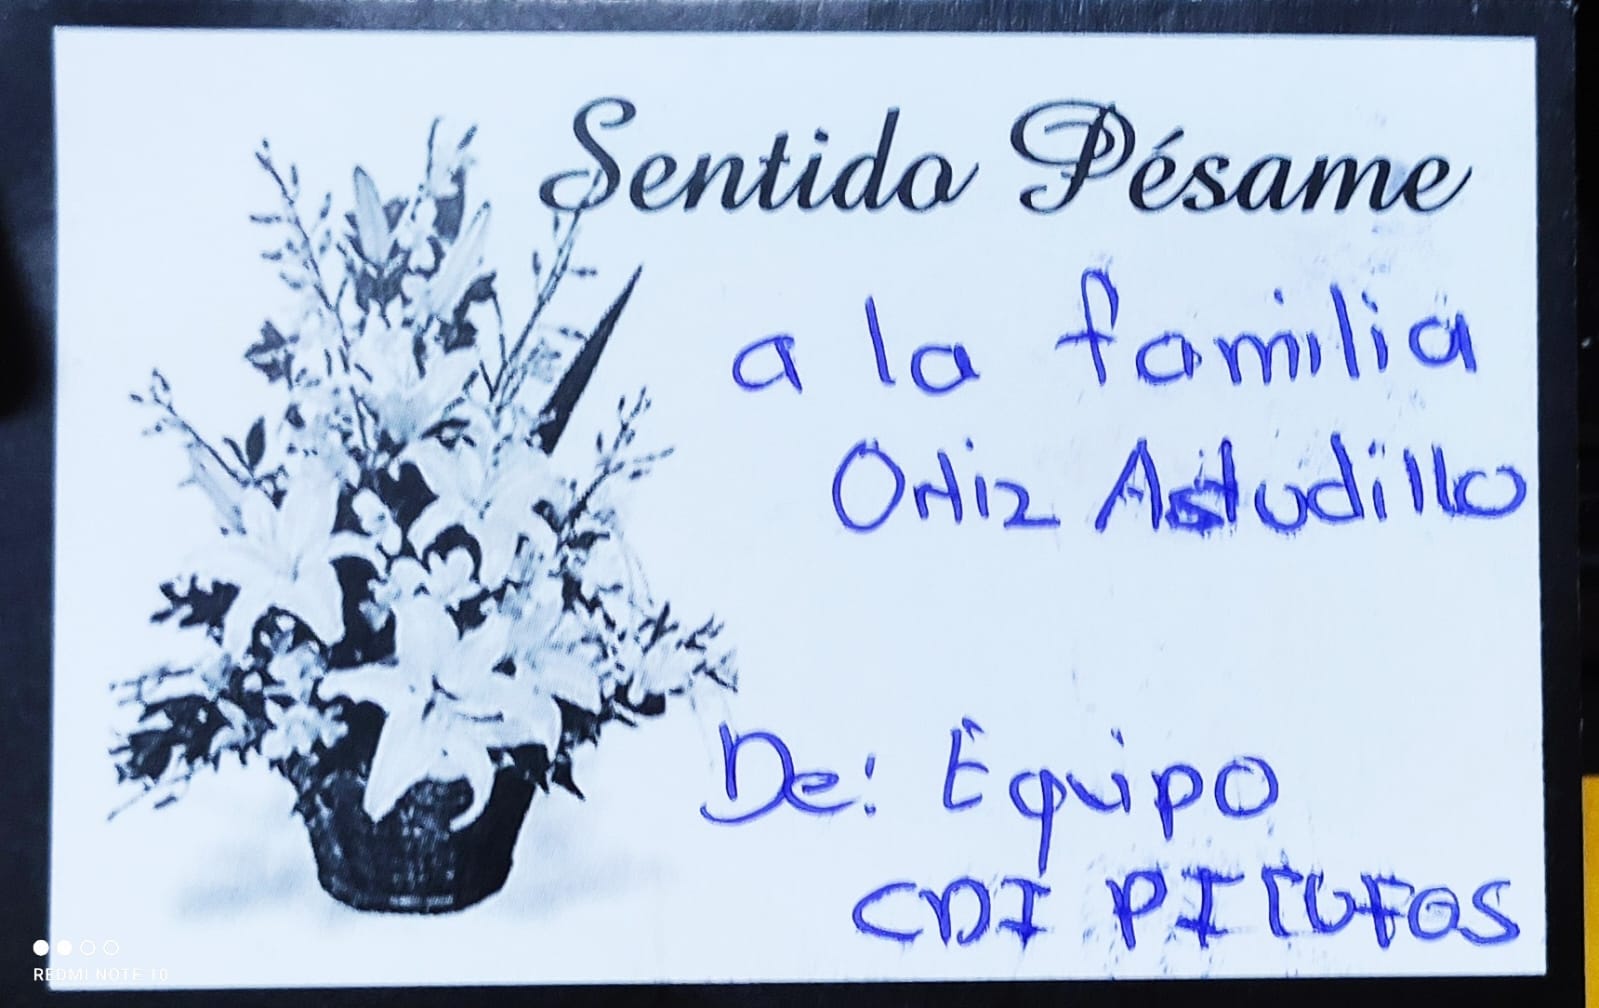 Sentido Pésame
a la familia
Ortiz Astudillo
De: Equipo
CDI PITUFOS
REDMI NOTE 10